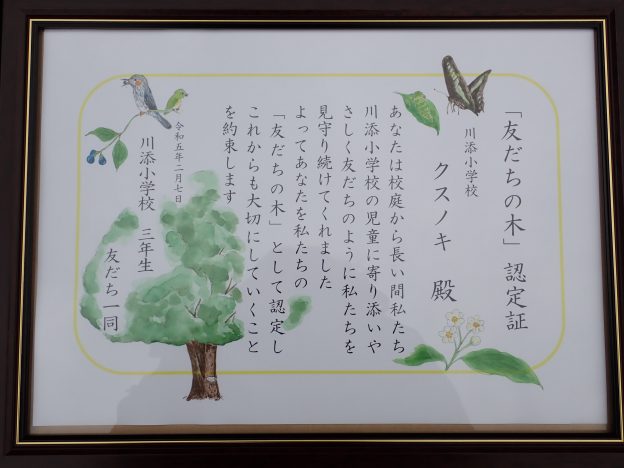 「友だちの木」認定証
川添小学校
クスノキ 殿
あなたは校庭から長い間私たち
川添小学校の児童に寄り添いや
さしく友だちのように私たちを
見守り続けてくれました
よってあなたを私たちの
「友だちの木」として認定し
これからも大切にしていくこと
を約束します
令和五年二月七日
川添小学校 三年生
友だち一同